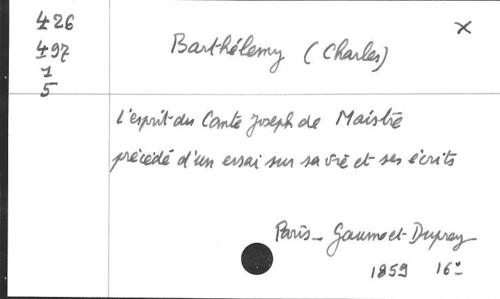 426
497
1
5
x
Barthélemy (Charles)
L'esprit du Comte Joseph de Maistre
précédé d'un essai sur sa vie et ses écrits
Paris - Gaume et Duprey
1859 16°